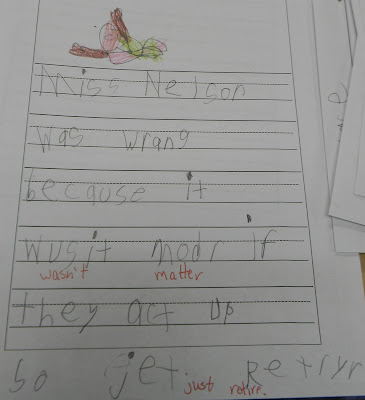 Miss Nelson
was wrang
because it
wusit modr if
wasn't matter
they act up
So jet Retryr
just retire.